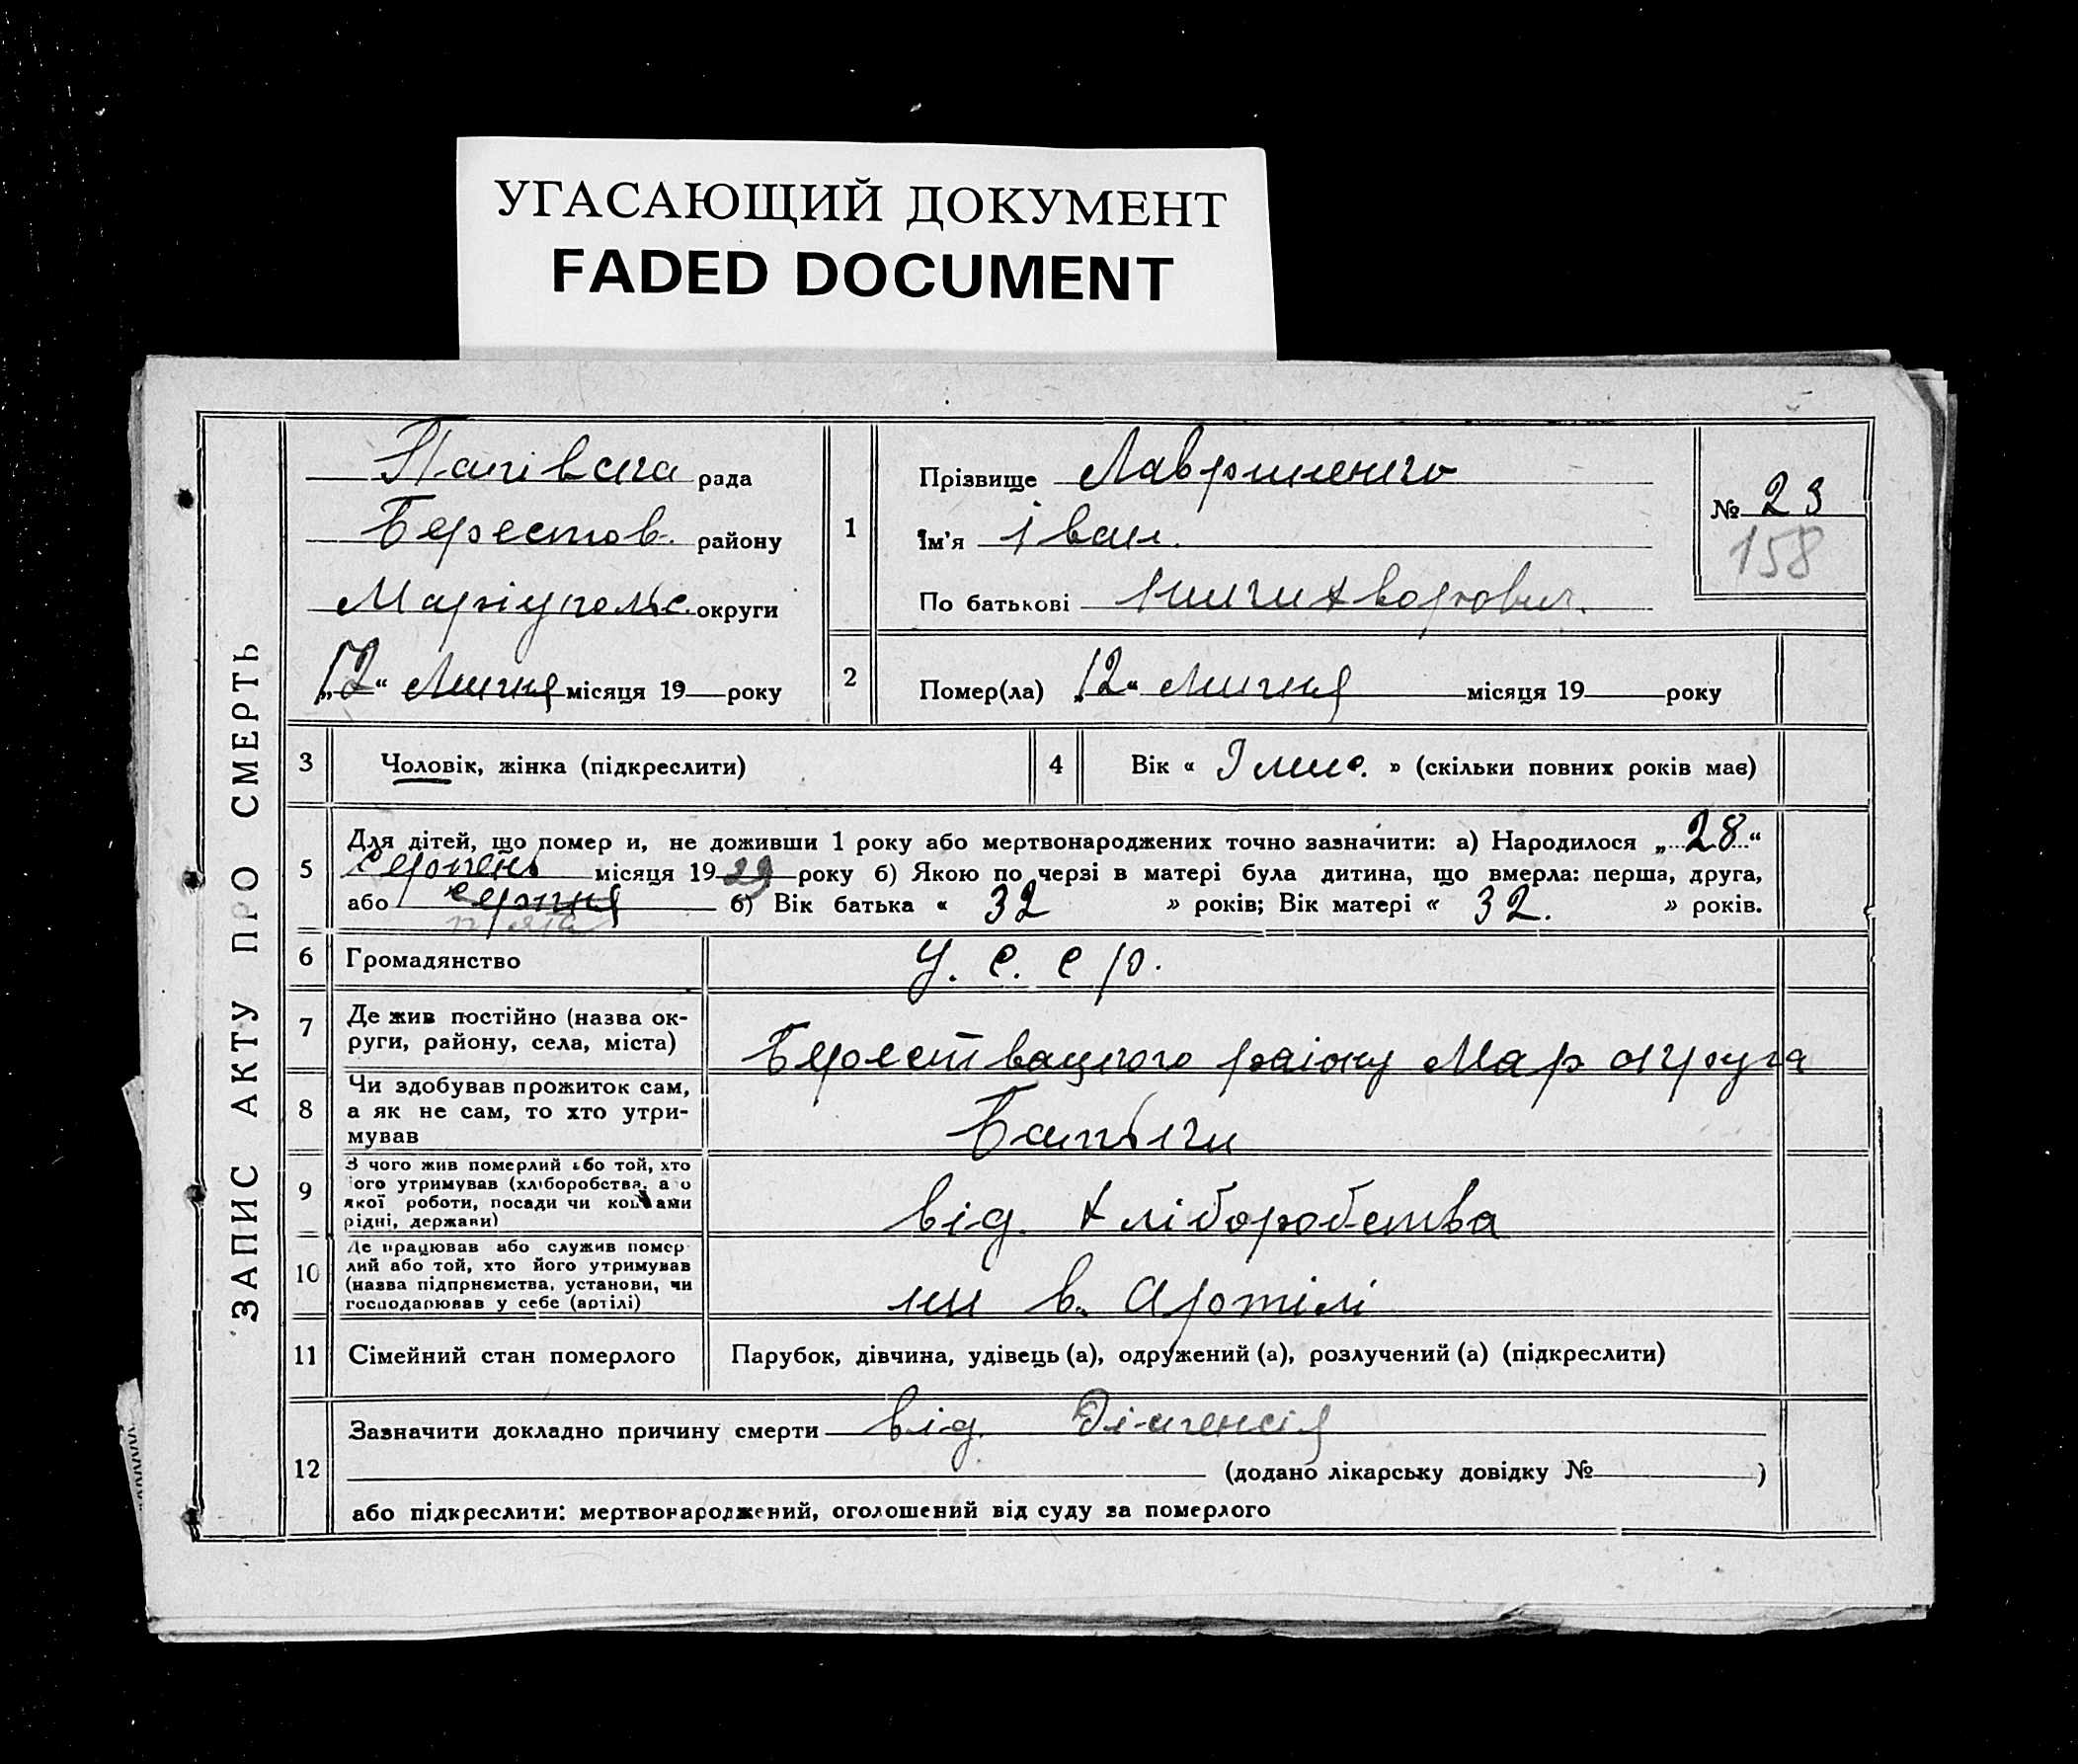 УГАСАЮЩИЙ ДОКУМЕНТ
FADED DOCUMENT
ЗАПИС АКТУ ПРО СМЕРТЬ
рада
Берестов. району
Маріупольс. округи
„12“ Липня місяця 19 року
1
Прізвище Лавриненко
Ім'я Іван.
По батькові
№ 23
158
2
Помер(ла) „12“ Липня місяця 19 року
3
Чоловік, жінка (підкреслити)
4
Вік « » (скільки повних років має)
5
Для дітей, що помер и, не доживши 1 року або мертвонароджених точно зазначити: а) Народилося „28“
Серпень місяця 1929 року б) Якою по черзі в матері була дитина, що вмерла: перша, друга,
або серпня б) Вік батька « 32 » років; Вік матері « 32. » років.
пята
6
Громадянство
У. С. С р.
7
Де жив постійно (назва ок-
руги, району, села, міста)
району Мар округа
8
Чи здобував прожиток сам,
а як не сам, то хто утри-
мував
Батьки
9
З чого жив померлий або той, хто
його утримував (хліборобства, а о
якої роботи, посади чи коштами
рідні, держави)
від хліборобства
10
Де працював або служив помер
лий або той, хто його утримував
(назва підприємства, установи, чи
господарював у себе (артілі)
в. Артілі
11
Сімейний стан померлого
Парубок, дівчина, удівець (а), одружений (а), розлучений (а) (підкреслити)
12
Зазначити докладно причину смерти від
(додано лікарську довідку № )
або підкреслити: мертвонароджений, оголошений від суду за померлого